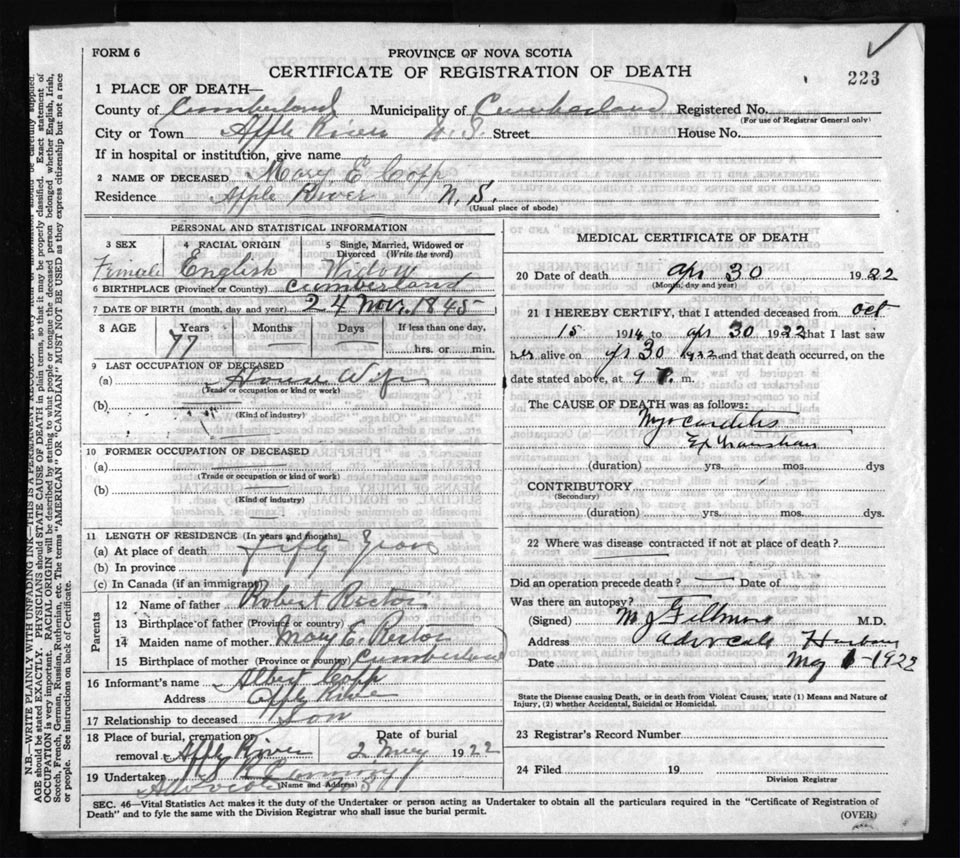 FORM 6
PROVINCE OF NOVA SCOTIA
CERTIFICATE OF REGISTRATION OF DEATH
223
1 PLACE OF DEATH—
County of Cumberland Municipality of Cumberland Registered No.
(For use of Registrar General only)
City or Town Apple River N. S. Street House No.
If in hospital or institution, give name
2 NAME OF DECEASED Mary E Copp
Residence Apple River N. S.
(Usual place of abode)
PERSONAL AND STATISTICAL INFORMATION
3 SEX 4 RACIAL ORIGIN 5 Single, Married, Widowed or Divorced (Write the word)
Female English Widow
6 BIRTHPLACE (Province or Country) Cumberland
7 DATE OF BIRTH (month, day and year) 24 Nov. 1845
8 AGE Years Months Days If less than one day,
77 — — hrs. or min.
9 LAST OCCUPATION OF DECEASED
(a) House Wife
(Trade or occupation or kind or work)
(b)
(Kind of industry)
10 FORMER OCCUPATION OF DECEASED
(a)
(Trade or occupation or kind of work)
(b)
(Kind of industry)
11 LENGTH OF RESIDENCE (In years and months)
(a) At place of death fifty years
(b) In province
(c) In Canada (if an immigrant)
Parents
12 Name of father Robert Rector
13 Birthplace of father (Province or country)
14 Maiden name of mother Mary E. Rector
15 Birthplace of mother (Province or country) Cumberland
16 Informant's name Albert Copp
Address Apple River
17 Relationship to deceased Son
18 Place of burial, cremation or removal Apple River Date of burial 2 May 1922
19 Undertaker
(Name and Address)
MEDICAL CERTIFICATE OF DEATH
20 Date of death Apr 30 1922
(Month, day and year)
21 I HEREBY CERTIFY, that I attended deceased from Oct
15 1914 to Apr 30 1922 that I last saw
her alive on Apr 30 1922 and that death occurred, on the
date stated above, at 9 P. m.
The CAUSE OF DEATH was as follows:
Myocarditis
Exhaustion
(duration) yrs. mos. dys
CONTRIBUTORY
(Secondary)
(duration) yrs. mos. dys.
22 Where was disease contracted if not at place of death?
Did an operation precede death? — Date of
Was there an autopsy?
(Signed) M. J. Fillmore M.D.
Address Advocate Harbour
Date May 1 - 1922
State the Disease causing Death, or in death from Violent Causes, state (1) Means and Nature of
Injury, (2) whether Accidental, Suicidal or Homicidal.
23 Registrar's Record Number
24 Filed 19
Division Registrar
SEC. 46—Vital Statistics Act makes it the duty of the Undertaker or person acting as Undertaker to obtain all the particulars required in the "Certificate of Registration of
Death" and to fyle the same with the Division Registrar who shall issue the burial permit.
(OVER)
N.B.—WRITE PLAINLY WITH UNFADING INK—THIS IS A PERMANENT RECORD. Every item of information should be carefully supplied.
AGE should be stated EXACTLY. PHYSICIANS should STATE CAUSE OF DEATH in plain terms, so that it may be properly classified. Exact statement of
OCCUPATION is very important. RACIAL ORIGIN will be described by stating to what people or tongue the deceased person belonged whether English, Irish,
Scotch, French, German, Russian, Ruthenian, etc. The terms "AMERICAN" OR "CANADIAN" MUST NOT BE USED as they express citizenship but not a race
or people. See instructions on back of Certificate.